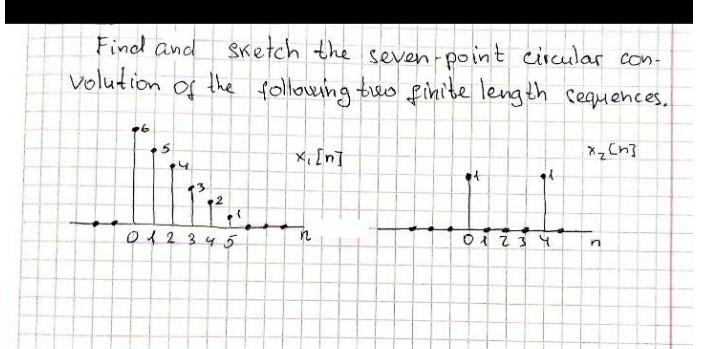 Find and sketch the seven-point circular con-
volution of the following two finite length sequences.
6
5
4
3
2
1
x₁[n]
0 1 2 3 4 5 n
1 1
x₂[n]
0 1 2 3 4 n